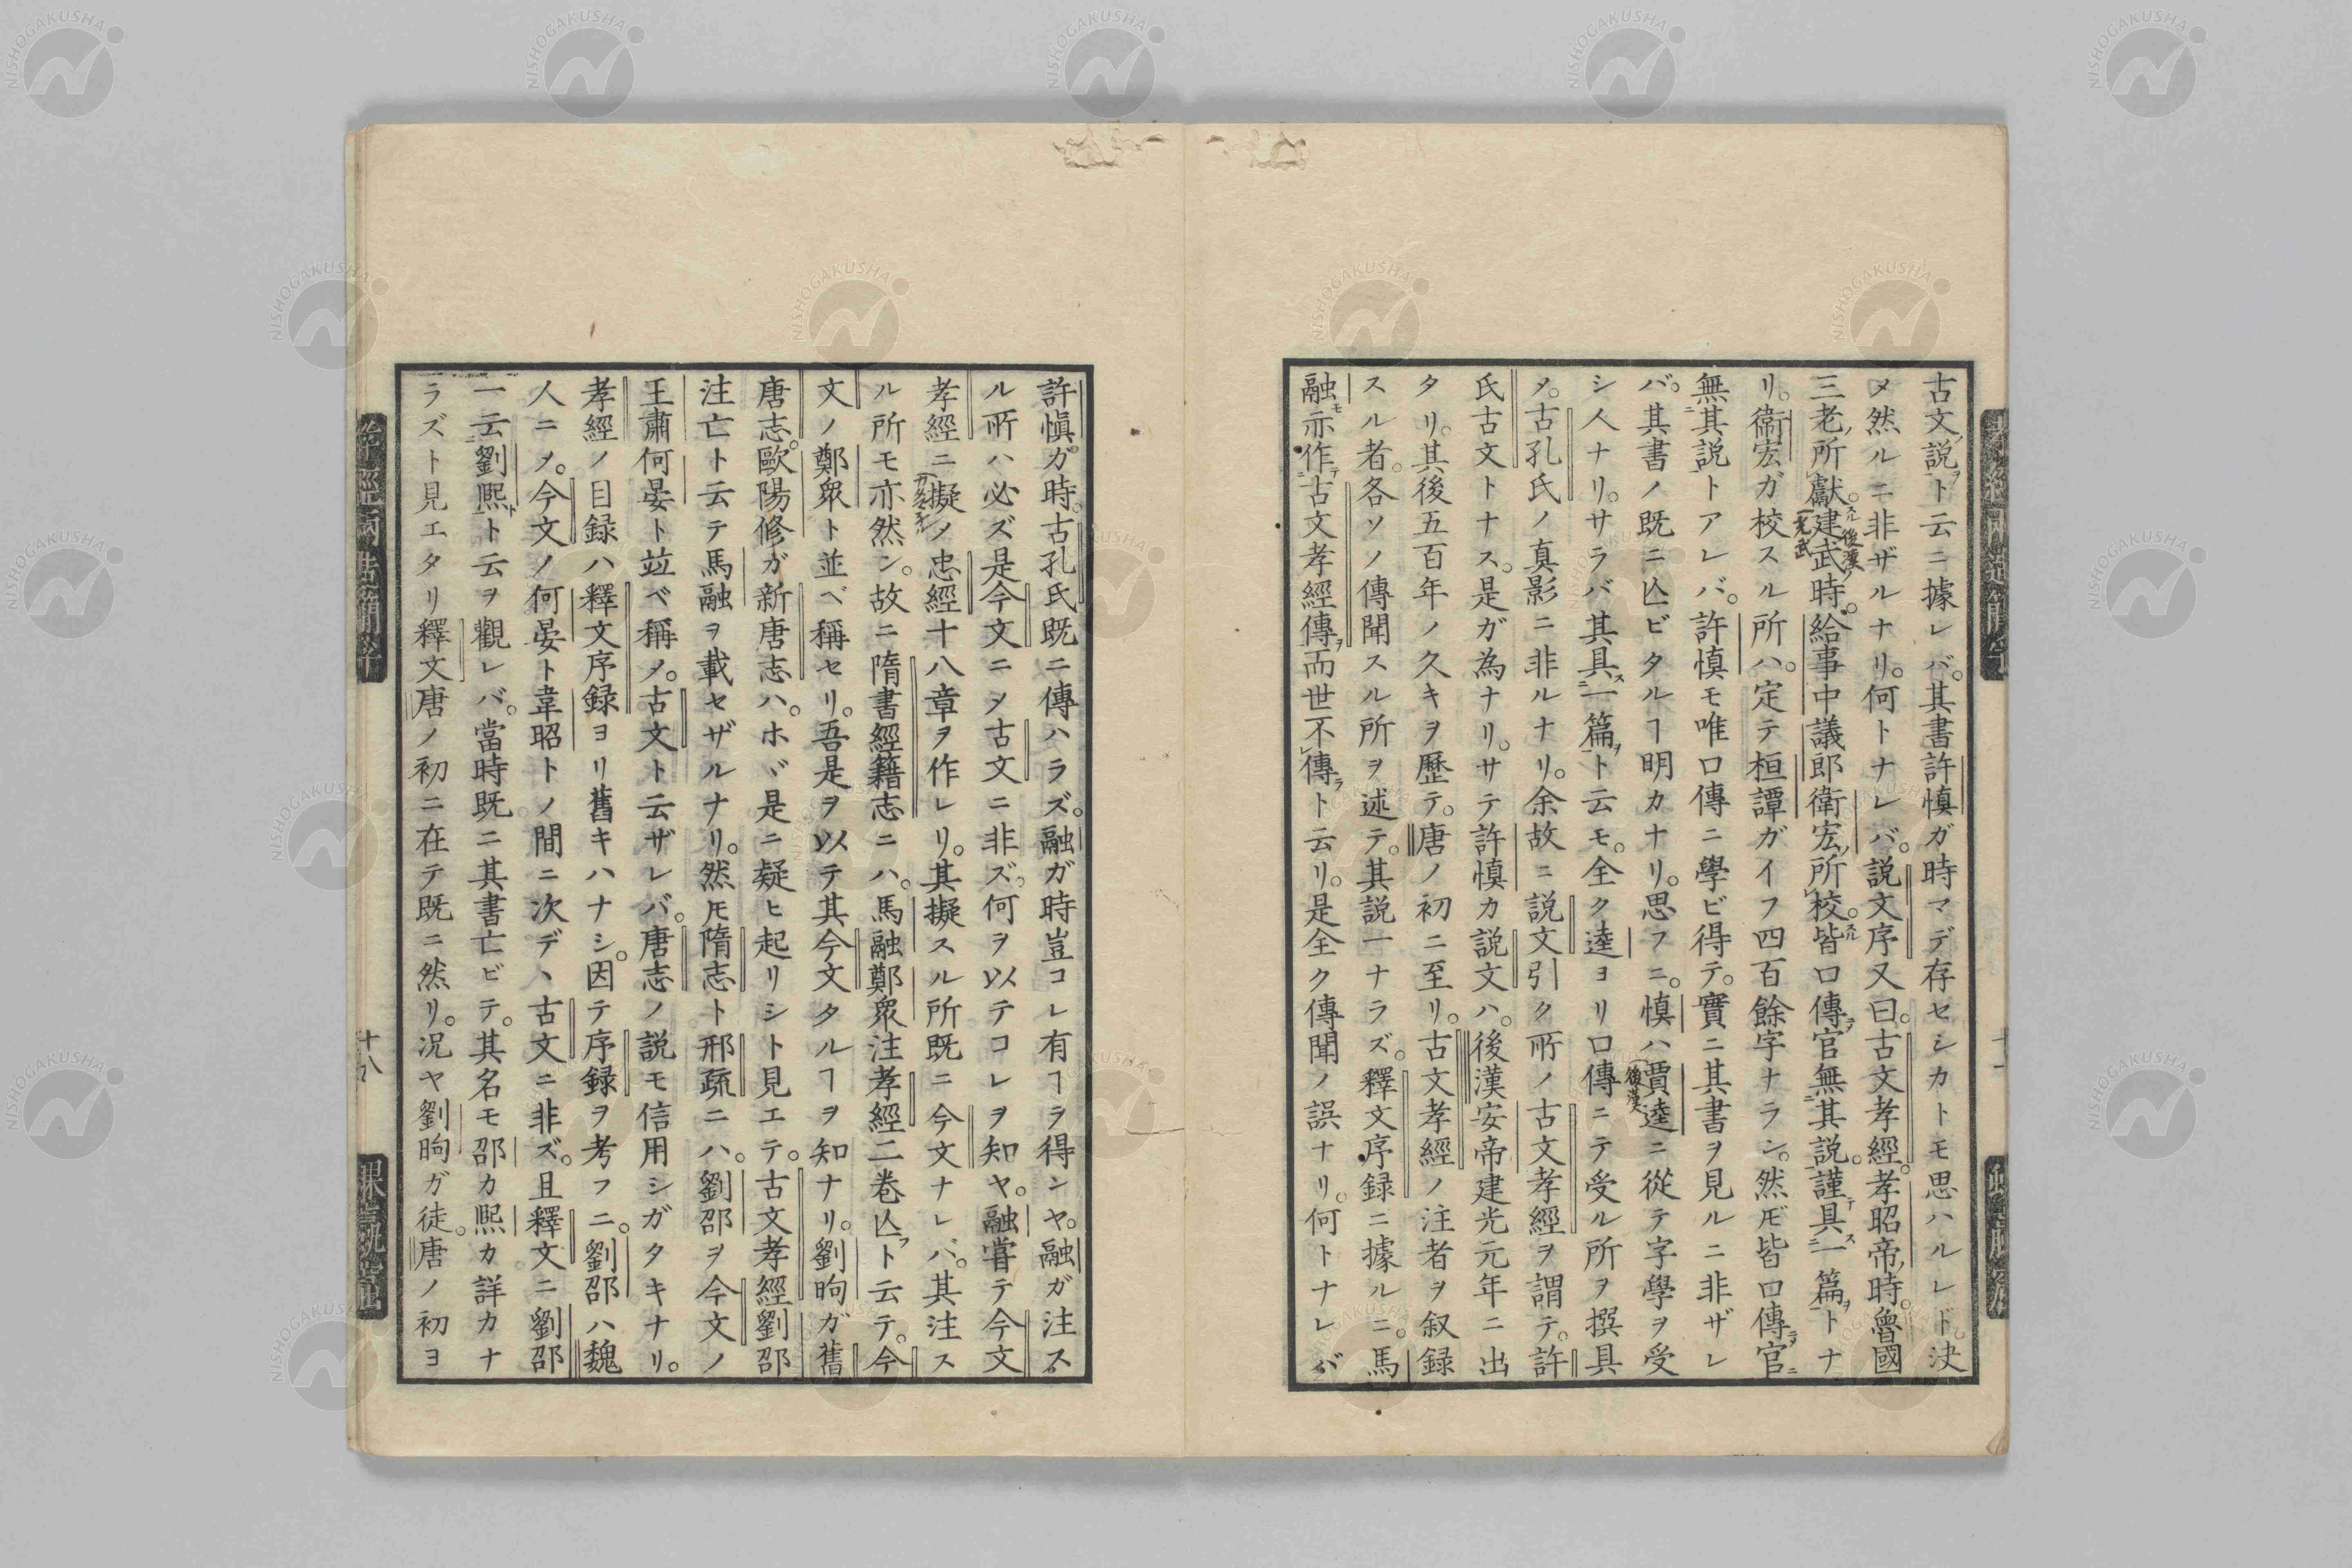 古文説ヲト云ニ據レバ。其書許慎ガ時マデ存セシカトモ思ハルレド。决
メ然ルニ非ザルナリ。何トナレバ。説文序又曰。古文孝經。孝昭帝ノ時。魯國
三老ノ所獻スル。建武後漢ノ光武時。給事中議郎衛宏ノ所校スル。皆口傳ヲ官無其説。謹テ具ス一篇ヲトナ
リ。衛宏ガ校スル所ハ。定テ桓譚ガイフ四百餘字ナラン。然ㇳモ皆口傳ヲ官ニ
無其説トアレバ。許慎モ唯口傳ニ學ビ得テ。實ニ其書ヲ見ルニ非ザレ
バ。其書ノ既ニ亾ビタルヿ明カナリ。思フニ。慎ハ後漢賈逵ニ從テ字學ヲ受
シ人ナリ。サラバ其具ス一篇ヲト云モ。全ク逵ヨリ口傳ニテ受ル所ヲ撰具
〆。古孔氏ノ真影ニ非ルナリ。余故ニ説文引ク所ノ古文孝經ヲ謂テ。許
氏古文トナス。是ガ為ナリ。サテ許慎カ説文ハ。後漢安帝建光元年ニ出
タリ。其後五百年ノ久キヲ歴テ。唐ノ初ニ至リ。古文孝經ノ注者ヲ叙録
スル者。各ソノ傳聞スル所ヲ述テ。其説一ナラズ。釋文序録ニ據ルニ。馬
融モ亦作テ古文孝經傳ヲ而世不傳ラト云リ。是全ク傳聞ノ誤ナリ。何トナレバ
許慎ガ時。古孔氏既ニ傳ハラズ。融ガ時豈コレ有ヿヲ得ンヤ。融ガ注ス
ル所ハ必ズ是今文ニ〆古文ニ非ズ。何ヲ以テコレヲ知ヤ。融嘗テ今文
孝經ニ擬〆忠經十八章ヲ作レリ。其擬スル所既ニ今文ナレバ。其注ス
ル所モ亦然ン。故ニ隋書經籍志ニハ。馬融鄭衆注孝經二巻亾フト云テ。今
文ノ鄭衆ト並ベ稱セリ。吾是ヲ以テ其今文タルヿヲ知ナリ。劉昫ガ舊
唐志。歐陽修ガ新唐志ハ。ホヾ是ニ疑ヒ起リシト見エテ。古文孝經劉邵
注亡ト云テ馬融ヲ載セザルナリ。然ㇳモ隋志ト邢疏ニハ。劉邵ヲ今文ノ
王肅何晏ト竝ベ稱〆。古文ト云ザレバ。唐志ノ説モ信用シガタキナリ。
孝經ノ目録ハ釋文序録ヨリ舊キハナシ。因テ序録ヲ考フニ。劉邵ハ魏
人ニ〆。今文ノ何晏ト韋昭トノ間ニ次デヽ古文ニ非ズ。且釋文ニ劉邵
一云劉熙ト云ヲ觀レバ。當時既ニ其書亡ビテ。其名モ邵カ熙カ詳カナ
ラズト見エタリ釋文唐ノ初ニ在テ既ニ然リ。况ヤ劉昫ガ徒。唐ノ初ヨ
十八
NISHOGAKUSHA